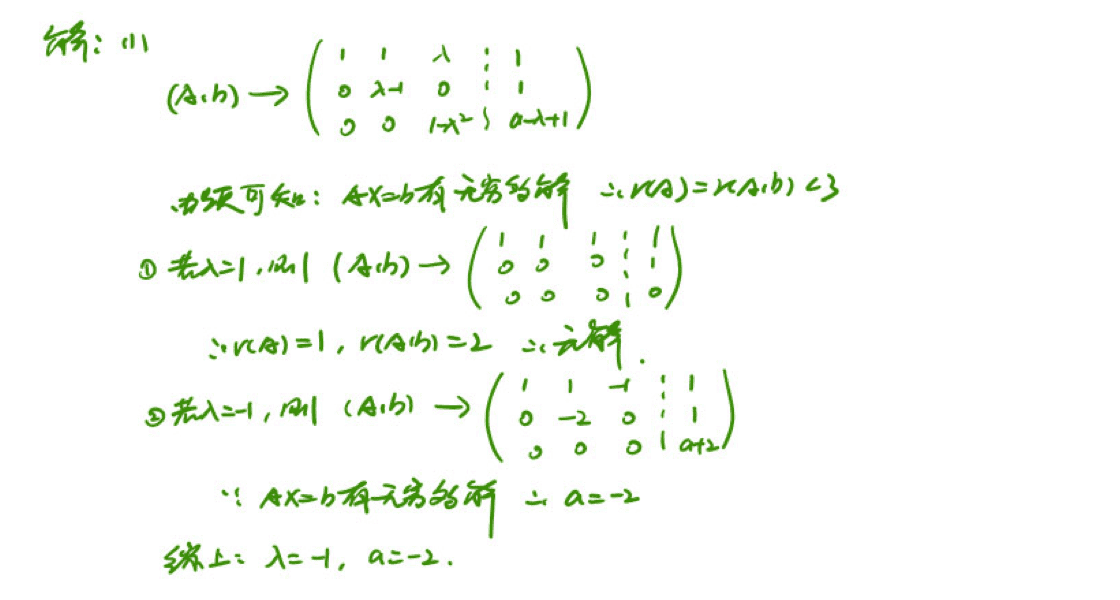 解: (1)
1 1 λ ⋮ 1
(A,b) → 0 λ-1 0 ⋮ 1
0 0 1-λ² ⋮ a-λ+1
由题可知: AX=b有无穷多解 ∴r(A)=r(A,b)<3
1 1 1 ⋮ 1
① 若λ=1,则 (A,b) → 0 0 0 ⋮ 1
0 0 0 ⋮ 0
∴r(A)=1, r(A,b)=2 ∴无解.
1 1 -1 ⋮ 1
② 若λ=-1,则 (A,b) → 0 -2 0 ⋮ 1
0 0 0 ⋮ a+2
∵ AX=b有无穷多解 ∴ a=-2
综上: λ=-1, a=-2.